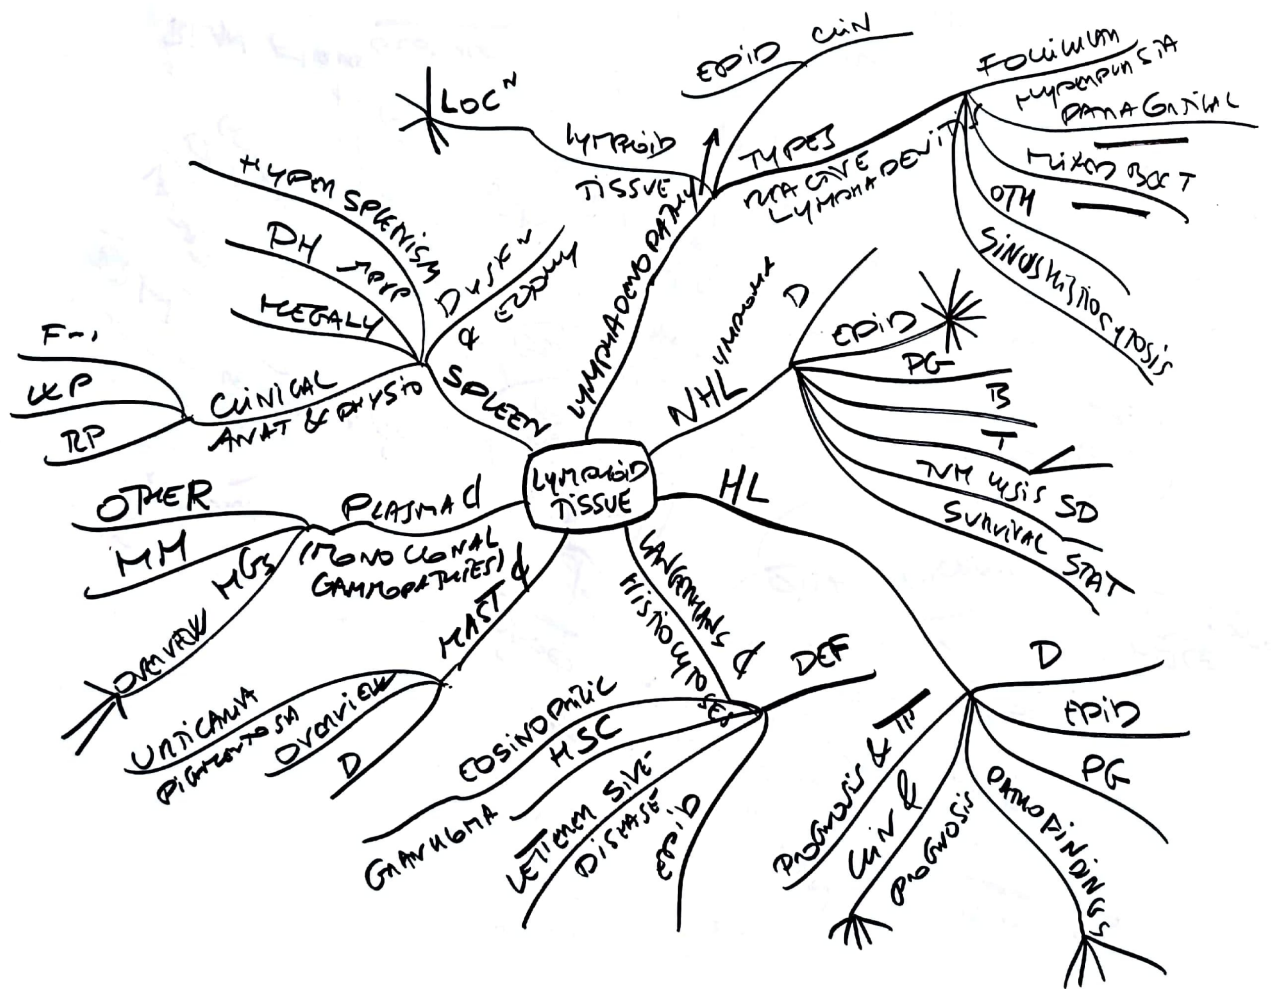 LYMPHOID
TISSUE
LYMPHADENOPATHY
LYMPHOID
TISSUE
LOCN
EPID CLIN
TYPES
REACTIVE
LYMPHADENITIS
FOLLICULAR
HYPERPLASIA
PARAGORTICAL
MIXED BCCT
OTH
SINUS HISTIOCYTOSIS
NHL LYMPHOMA
D
EPID
PG
B
T
SD
SURVIVAL STAT
HL
D
EPID
PG
PATHO FINDINGS
CLIN &
PROGNOSIS
PROGNOSIS &
LANGERHANS
HISTIOCYTOSES
DEF
EOSINOPHILIC
GRANULOMA
HSC
LETTERER SIVE
DISEASE
EPID
MAST
D
OVERVIEW
URTICARIA
PIGMENTOSA
PLASMA
(MONOCLONAL
GAMMOPATHIES)
OTHER
MM
MGS
OVERVIEW
SPLEEN
DYSFN
& ECTOMY
HYPERSPLENISM
MEGALY
CLINICAL
ANAT & PHYSIO
WP
RP